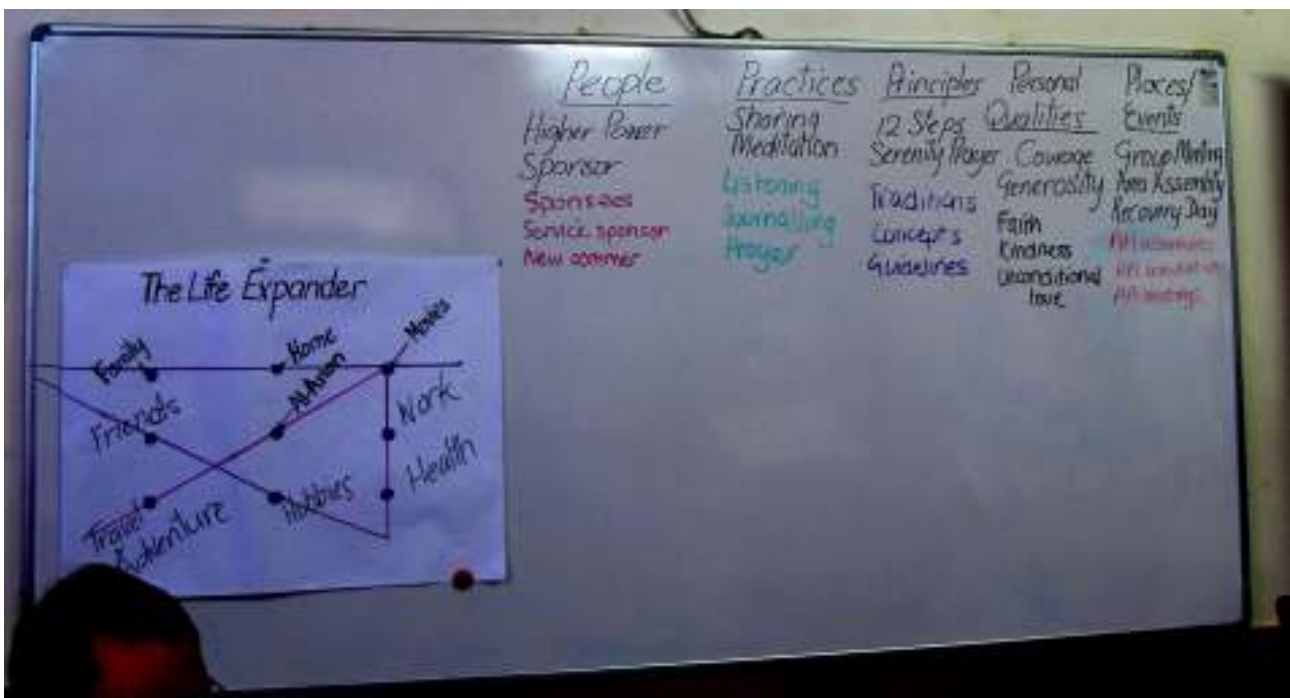 People
Higher Power
Sponsor
Sponsees
Service sponsor
New commer
Practices
Sharing
Meditation
Listening
Journalling
Prayer
Principles
12 Steps
Serenity Prayer
Traditions
Concepts
Guidelines
Personal
Qualities
Courage
Generosity
Faith
Kindness
Unconditional
love
Places/
Events
Group Meeting
Area Assembly
Recovery Day
AA meetings
The Life Expander
Family
Home
Movies
Friends
Al-Anon
Work
Health
Hobbies
Travel
Adventure